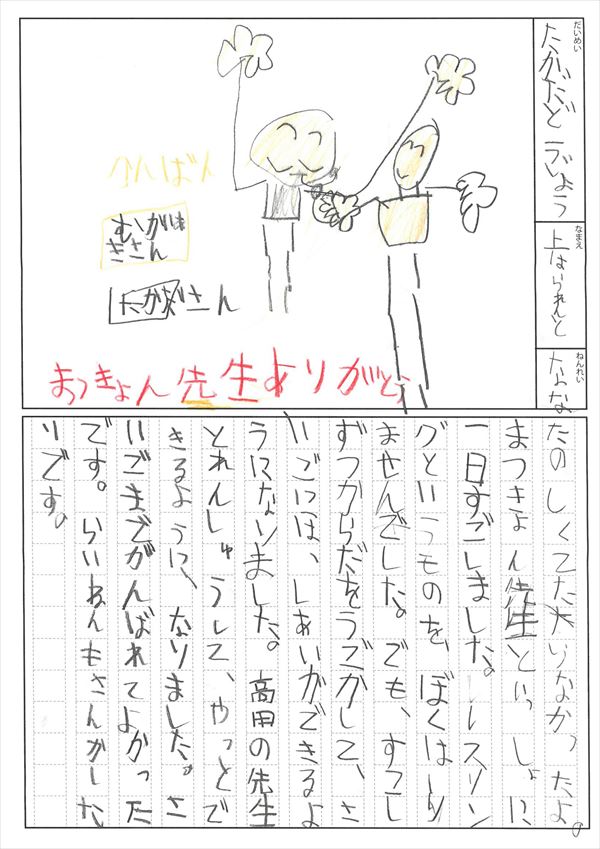 だいめい
たかだどうじょう
なまえ
上はられんと
ねんれい
かんばん
きさん
たかださん
まつきょん先生ありがとう
たのしくてたまりなかったよ。
まつきょん先生といっしょに
一日すごしました。レスリン
グというものを、ぼくはしり
ませんでした。でも、すこし
ずつからだをうごかして、さ
いごには、しあいができるよ
うになりました。高田の先生
とれんしゅうして、やっとで
きるように、なりました。さ
いごまでがんばれてよかった
です。らいねんもさんかした
いです。